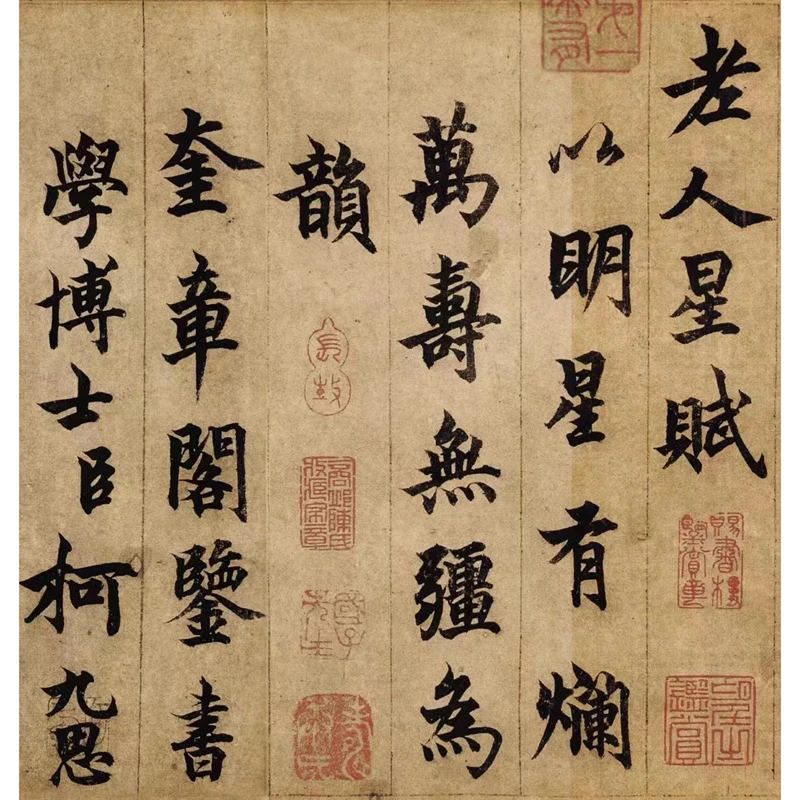 老人星賦
以明星有爛
萬壽無疆為
韻
奎章閣鑒書
學博士臣柯九思